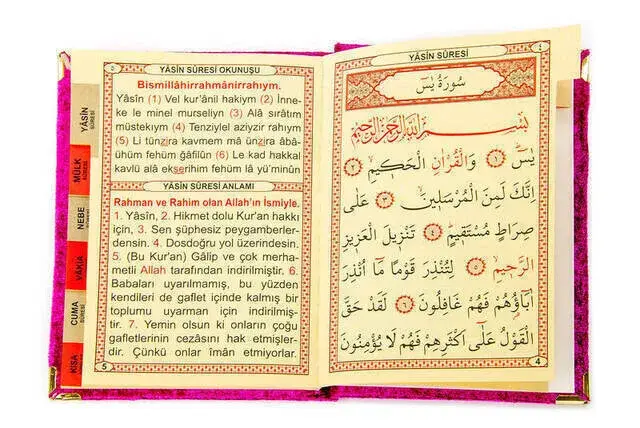 YÂSÎN SÛRESİ OKUNUŞU
Bismillâhirrahmânirrahıym.
Yâsîn (1) Vel kur'ânil hakiym (2) İnne-
ke le minel murseliyn (3) Alâ sırâtım
müstekıym (4) Tenziylel aziyzir rahıym
(5) Li tünzira kavmem mâ ünzira âbâ-
ühüm fehüm ğâfilûn (6) Le kad hakkal
kavlü alâ ekserihim fehüm lâ yü'minûn
YÂSÎN SÛRESİ ANLAMI
Rahman ve Rahim olan Allah'ın İsmiyle.
1. Yâsîn, 2. Hikmet dolu Kur'an hakkı
için, 3. Sen şüphesiz peygamberler-
densin. 4. Dosdoğru yol üzerindesin.
5. (Bu Kur'an) Gâlip ve çok merha-
metli Allah tarafından indirilmiştir. 6.
Babaları uyarılmamış, bu yüzden
kendileri de gaflet içinde kalmış bir
toplumu uyarman için indirilmiş-
tir. 7. Yemin olsun ki onların çoğu
gafletlerinin cezâsını hak etmişler-
dir. Çünkü onlar îmân etmiyorlar.
5
YÂSÎN SÛRESİ
MÜLK SÛRESİ
NEBE SÛRESİ
VÂKIA SÛRESİ
CUMA SÛRESİ
KISA
YÂSÎN SÛRESİ
٤
سُورَةُ يٰسٓ
بِسْمِ اللّٰهِ الرَّحْمٰنِ الرَّحِيمِ
يٰسٓ ﴿١﴾ وَالْقُرْاٰنِ الْحَكِيمِ ﴿٢﴾
اِنَّكَ لَمِنَ الْمُرْسَلِينَ ﴿٣﴾ عَلٰى
صِرَاطٍ مُسْتَقِيمٍ ﴿٤﴾ تَنْزِيلَ الْعَزِيزِ
الرَّحِيمِ ﴿٥﴾ لِتُنْذِرَ قَوْمًا مَٓا اُنْذِرَ
اٰبَٓاؤُهُمْ فَهُمْ غَافِلُونَ ﴿٦﴾ لَقَدْ حَقَّ
الْقَوْلُ عَلٰٓى اَكْثَرِهِمْ فَهُمْ لَا يُؤْمِنُونَ
4